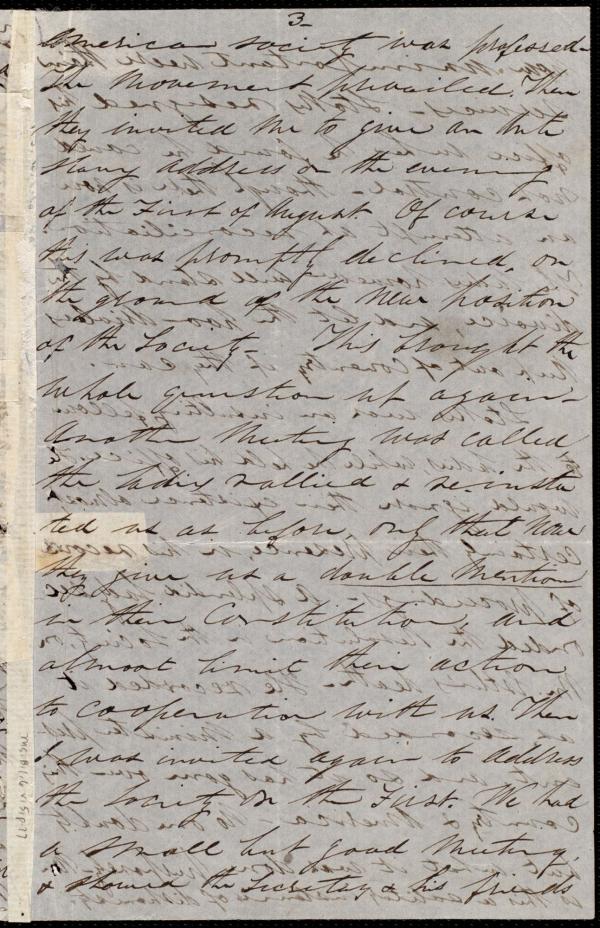 3-
American society was professed-
The movement prevailed. Then
they invited me to give an Anti
slavy address on the evening
of the First of August. Of course
this was promptly declined, on
the ground of the new position
of the Society- This brought the
whole question up again-
Another meeting was called
the ladies rallied & re-insta
ted us as before only that now
they give us a double mention
in their Constitution, and
almost limit their action
to cooperation with us. Then
I was invited again to address
the Society on the First. We had
a small but good meeting,
& showed the Secretary & his friends